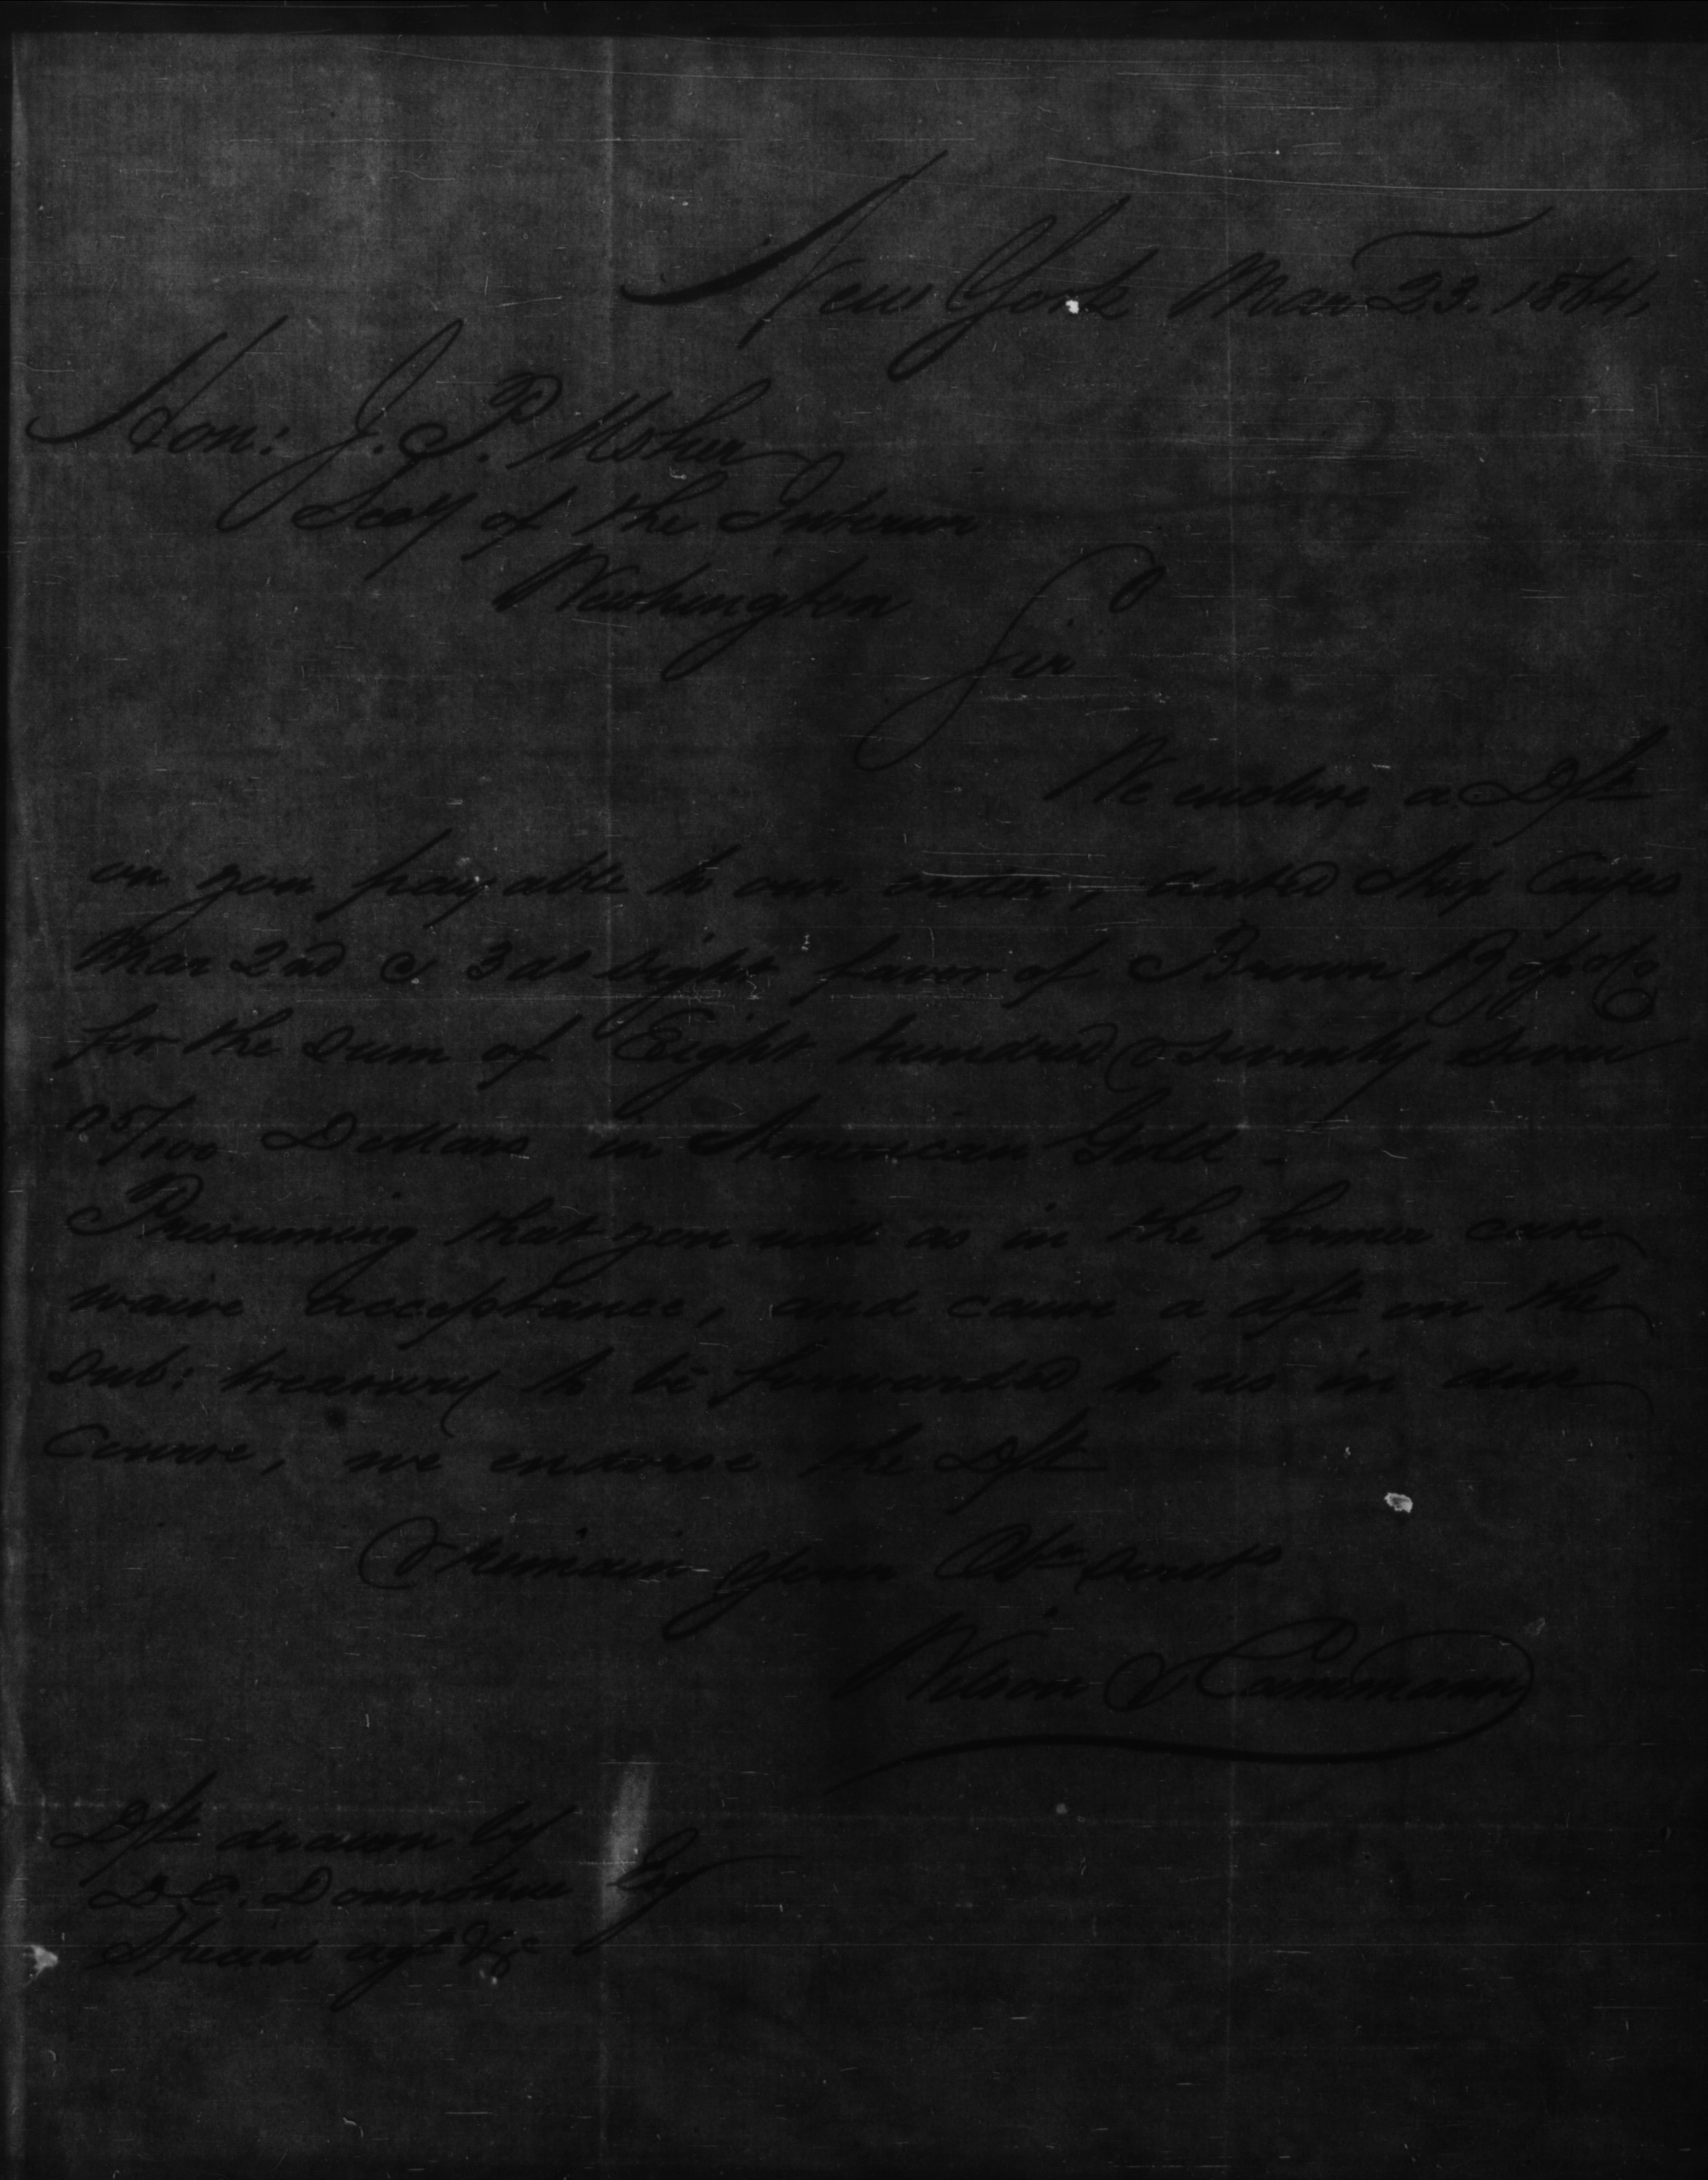 New York Mar 23. 1864,
Hon: J. P. Usher
Secy of the Interior
Washington
Sir
We enclose a Dft
on you payable to our order, dated Aux Cayes
Mar 2nd @ 3 ds sight favor of Brown
for the sum of Eight hundred & seventy seven
/100 Dollars in American Gold -
Presuming that you will as in the former case
waive acceptance, and cause a dft on the
Sub: treasury to be forwarded to us in due
Course, we endorse the Dft
& remain Your Obt Servts
Wilson & Cammann
Dft drawn by
D. C. Donnohue Esq
Special agt &c